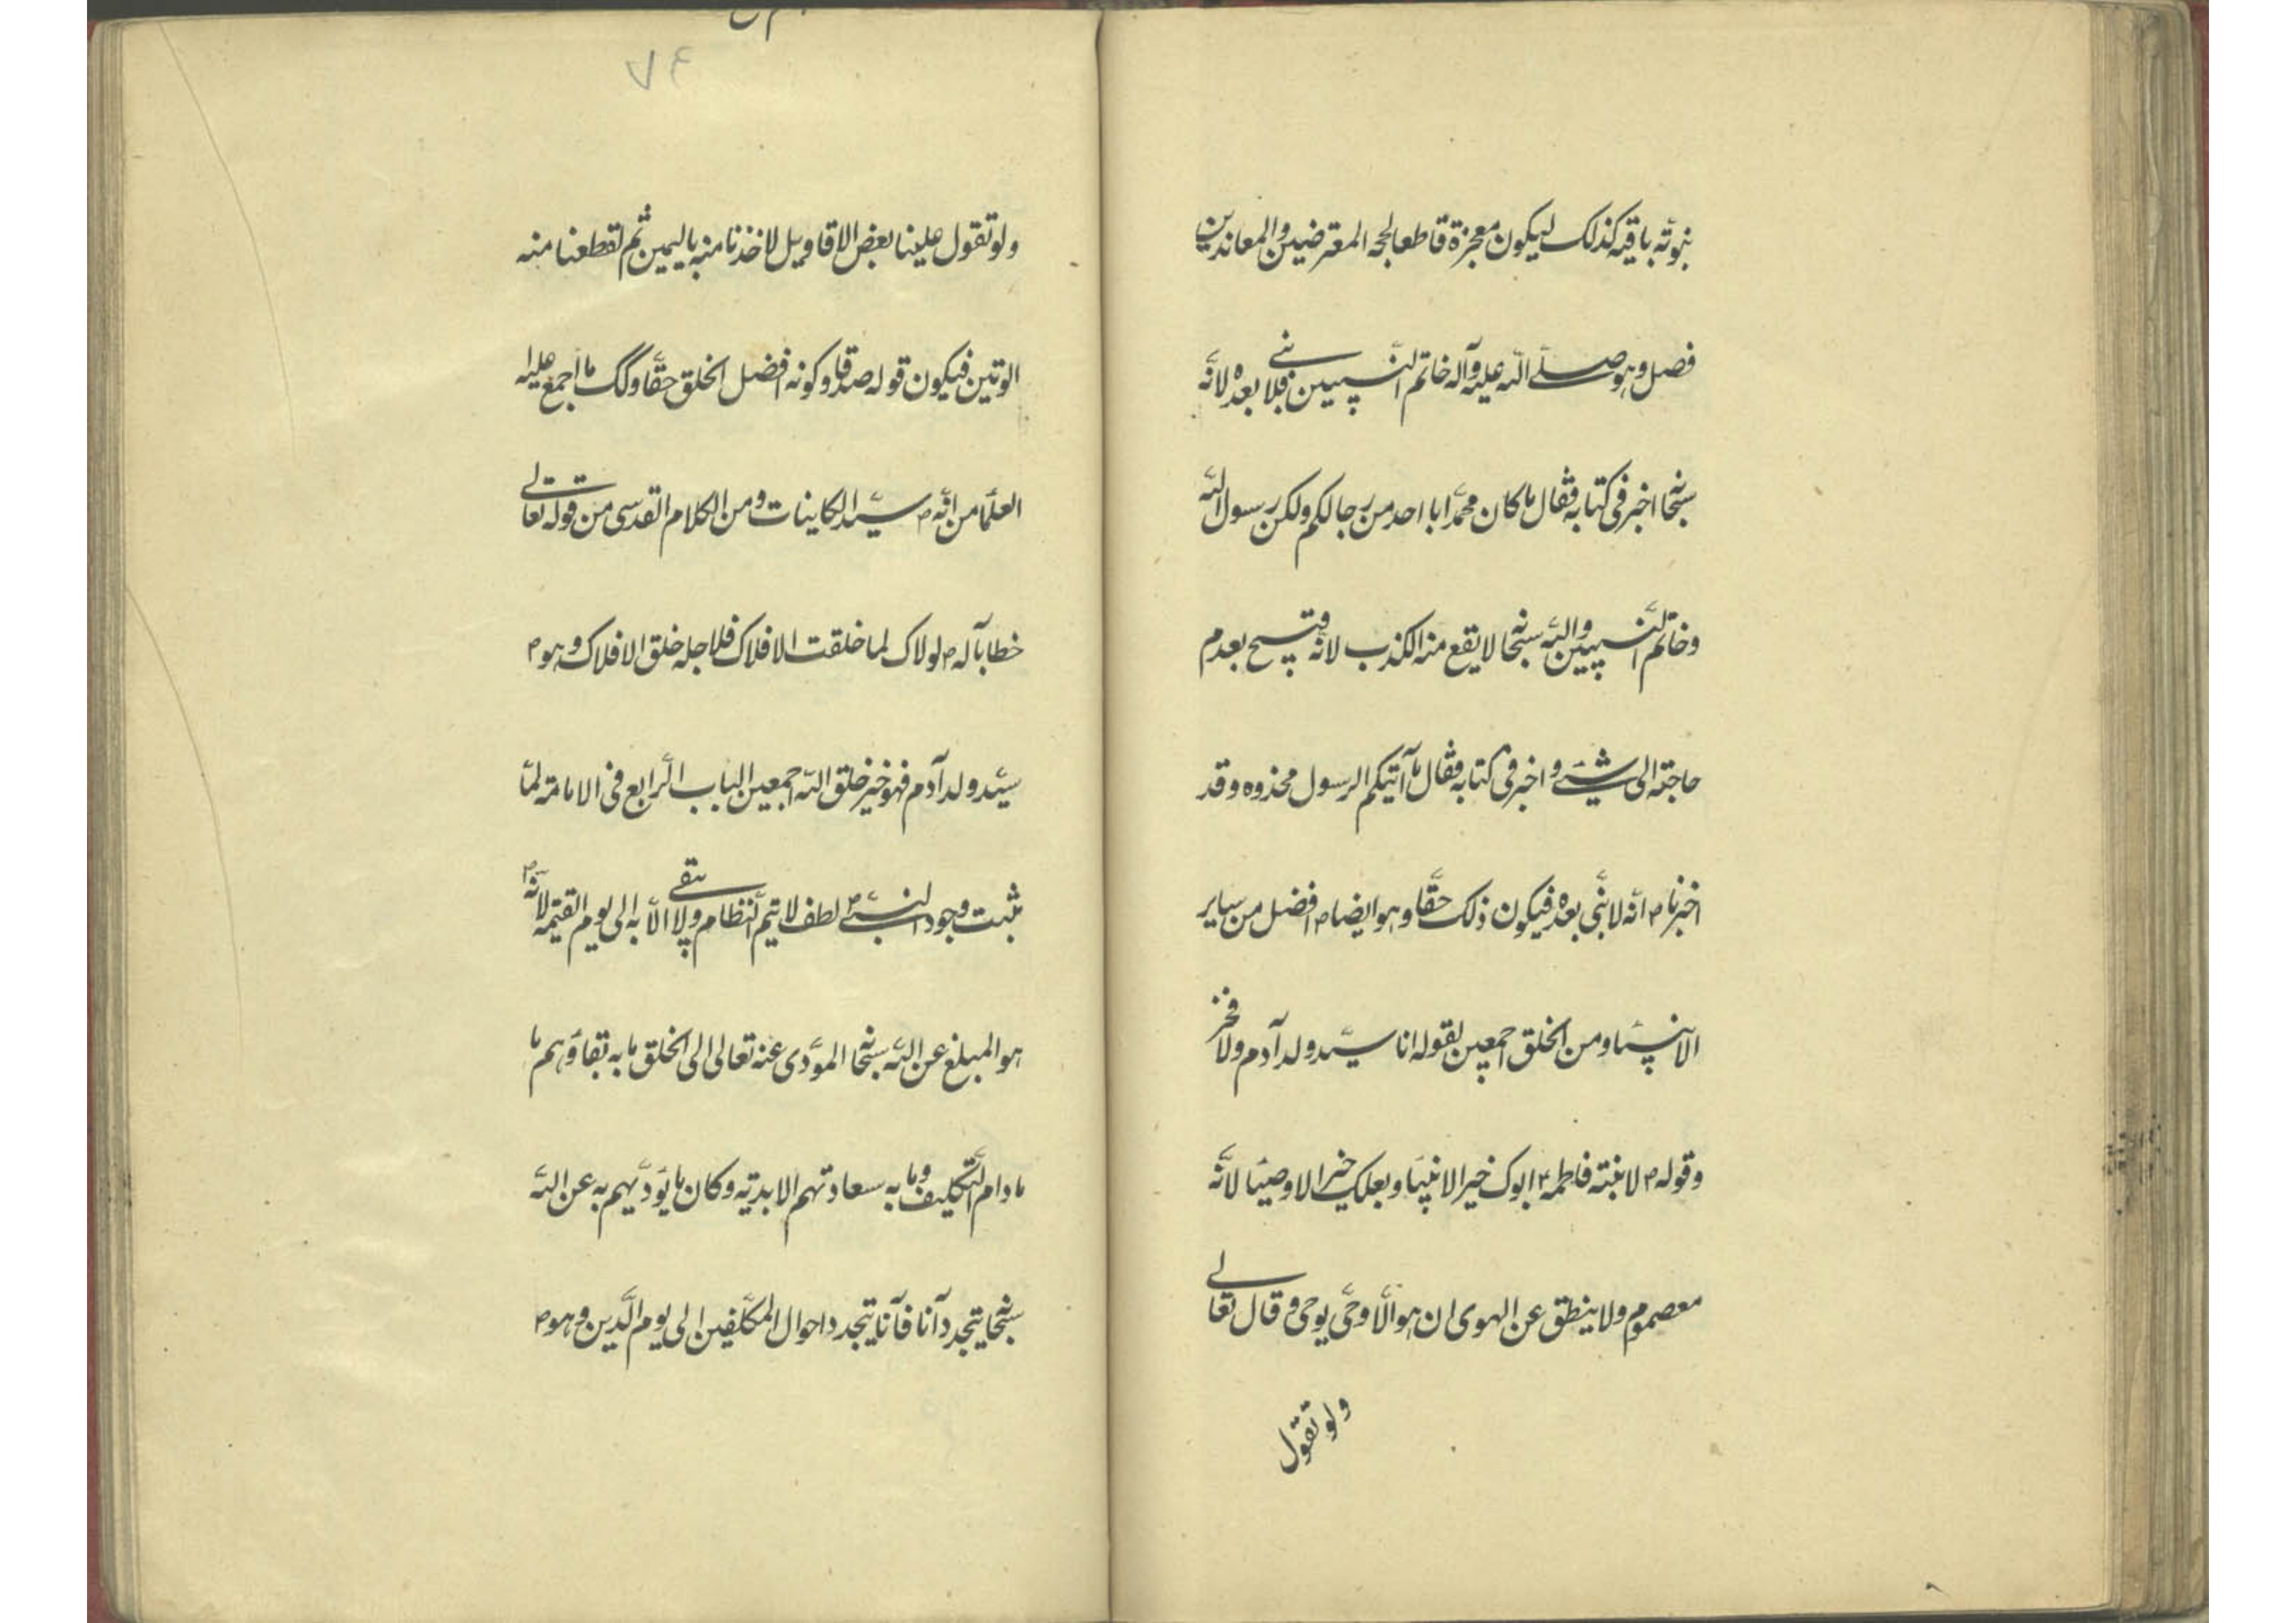 نبوته باقيه كذلك ليكون معجزة قاطعا لحجه المعترضين والمعاندين
فصل وهو صلى الله عليه وآله خاتم النبيين فلا نبى بعده لانّه
سبحانه اخبر فى كتابه فقال ما كان محمّد ابا احد من رجالكم ولكن رسول الله
وخاتم النبيين والله سبحانه لا يقع منه الكذب لانّه قبيح بعدم
حاجته الى شئ و اخبر فى كتابه فقال ما آتيكم الرسول فخذوه وقد
اخبرنا ص انّه لا نبّى بعده فيكون ذلك حقّا وهو ايضا ص افضل من ساير
الانبياء ومن الخلق اجمعين لقوله انا سيّد ولد آدم ولا فخر
وقوله ص لابنته فاطمه ع ابوك خير الانبياء وبعلك خير الاوصياء لانّه
معصوم ولا ينطق عن الهوى ان هو الّا وحى يوحى وقال تعالى
ولو تقول
٧٤
ولو تقول علينا بعض الاقاويل لاخذنا منه باليمين ثم لقطعنا منه
الوتين فيكون قوله صدقا وكونه افضل الخلق حقّا وكك ما اجمع عليه
العلما من انّه ص سيّد الكاينات ومن الكلام القدسى من قوله تعالى
خطابا له ص لولاك لما خلقت الافلاك فلاجله خلق الافلاك وهو ص
سيّد ولد آدم فهو خير خلق الله اجمعين الباب الرّابع فى الامامة لمّا
ثبت وجود النبىّ ص لطف لا يتم النّظام ولا يبقى الّا به الى يوم القيمه لانّه ص
هو المبلغ عن الله سبحانه المؤدى عنه تعالى الى الخلق ما به بقاؤهم ما
مادام التّكليف وما به سعادتهم الابديّه وكان ما يؤدّيهم به عن الله
سبحانه يتجدد آنا فآنا يتجدد احوال المكلّفين الى يوم الدّين وهو ص